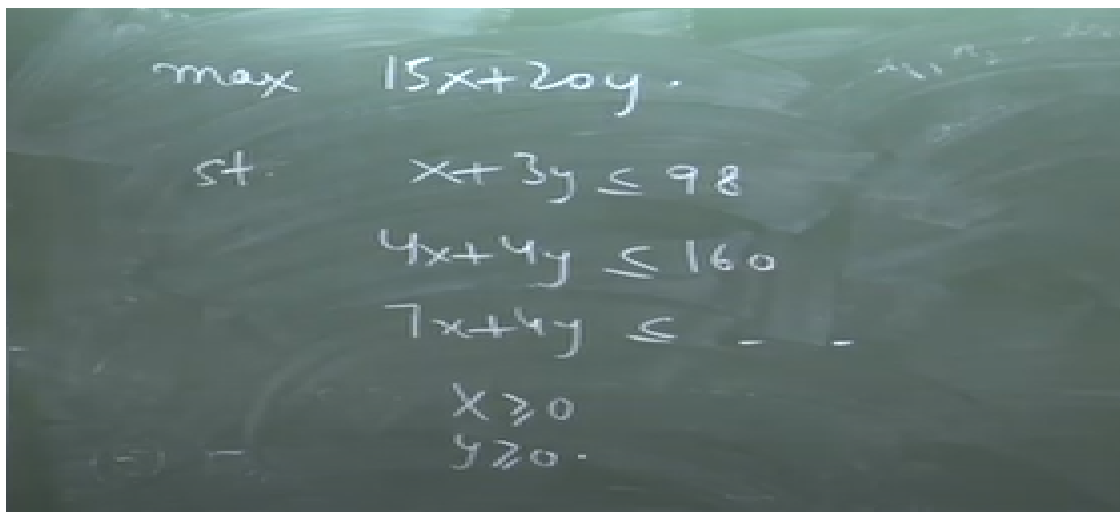 max 15x+20y.
st. x+3y ≤ 98
4x+4y ≤ 160
7x+4y ≤ _ _
x ≥ 0
y ≥ 0.